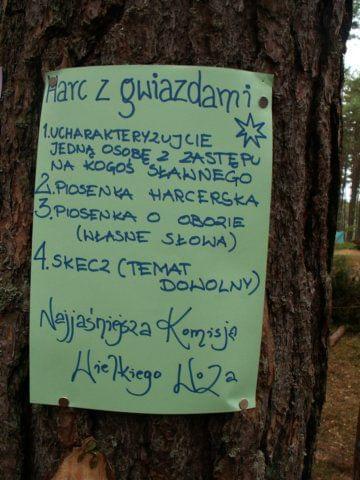 Harc z gwiazdami
1. UCHARAKTERYZUJCIE
JEDNĄ OSOBĘ Z ZASTĘPU
NA KOGOŚ SŁAWNEGO
2. PIOSENKA HARCERSKA
3. PIOSENKA O OBOZIE
(WŁASNE SŁOWA)
4. SKECZ (TEMAT
DOWOLNY)
Najjaśniejsza Komisja
Wielkiego WoZa